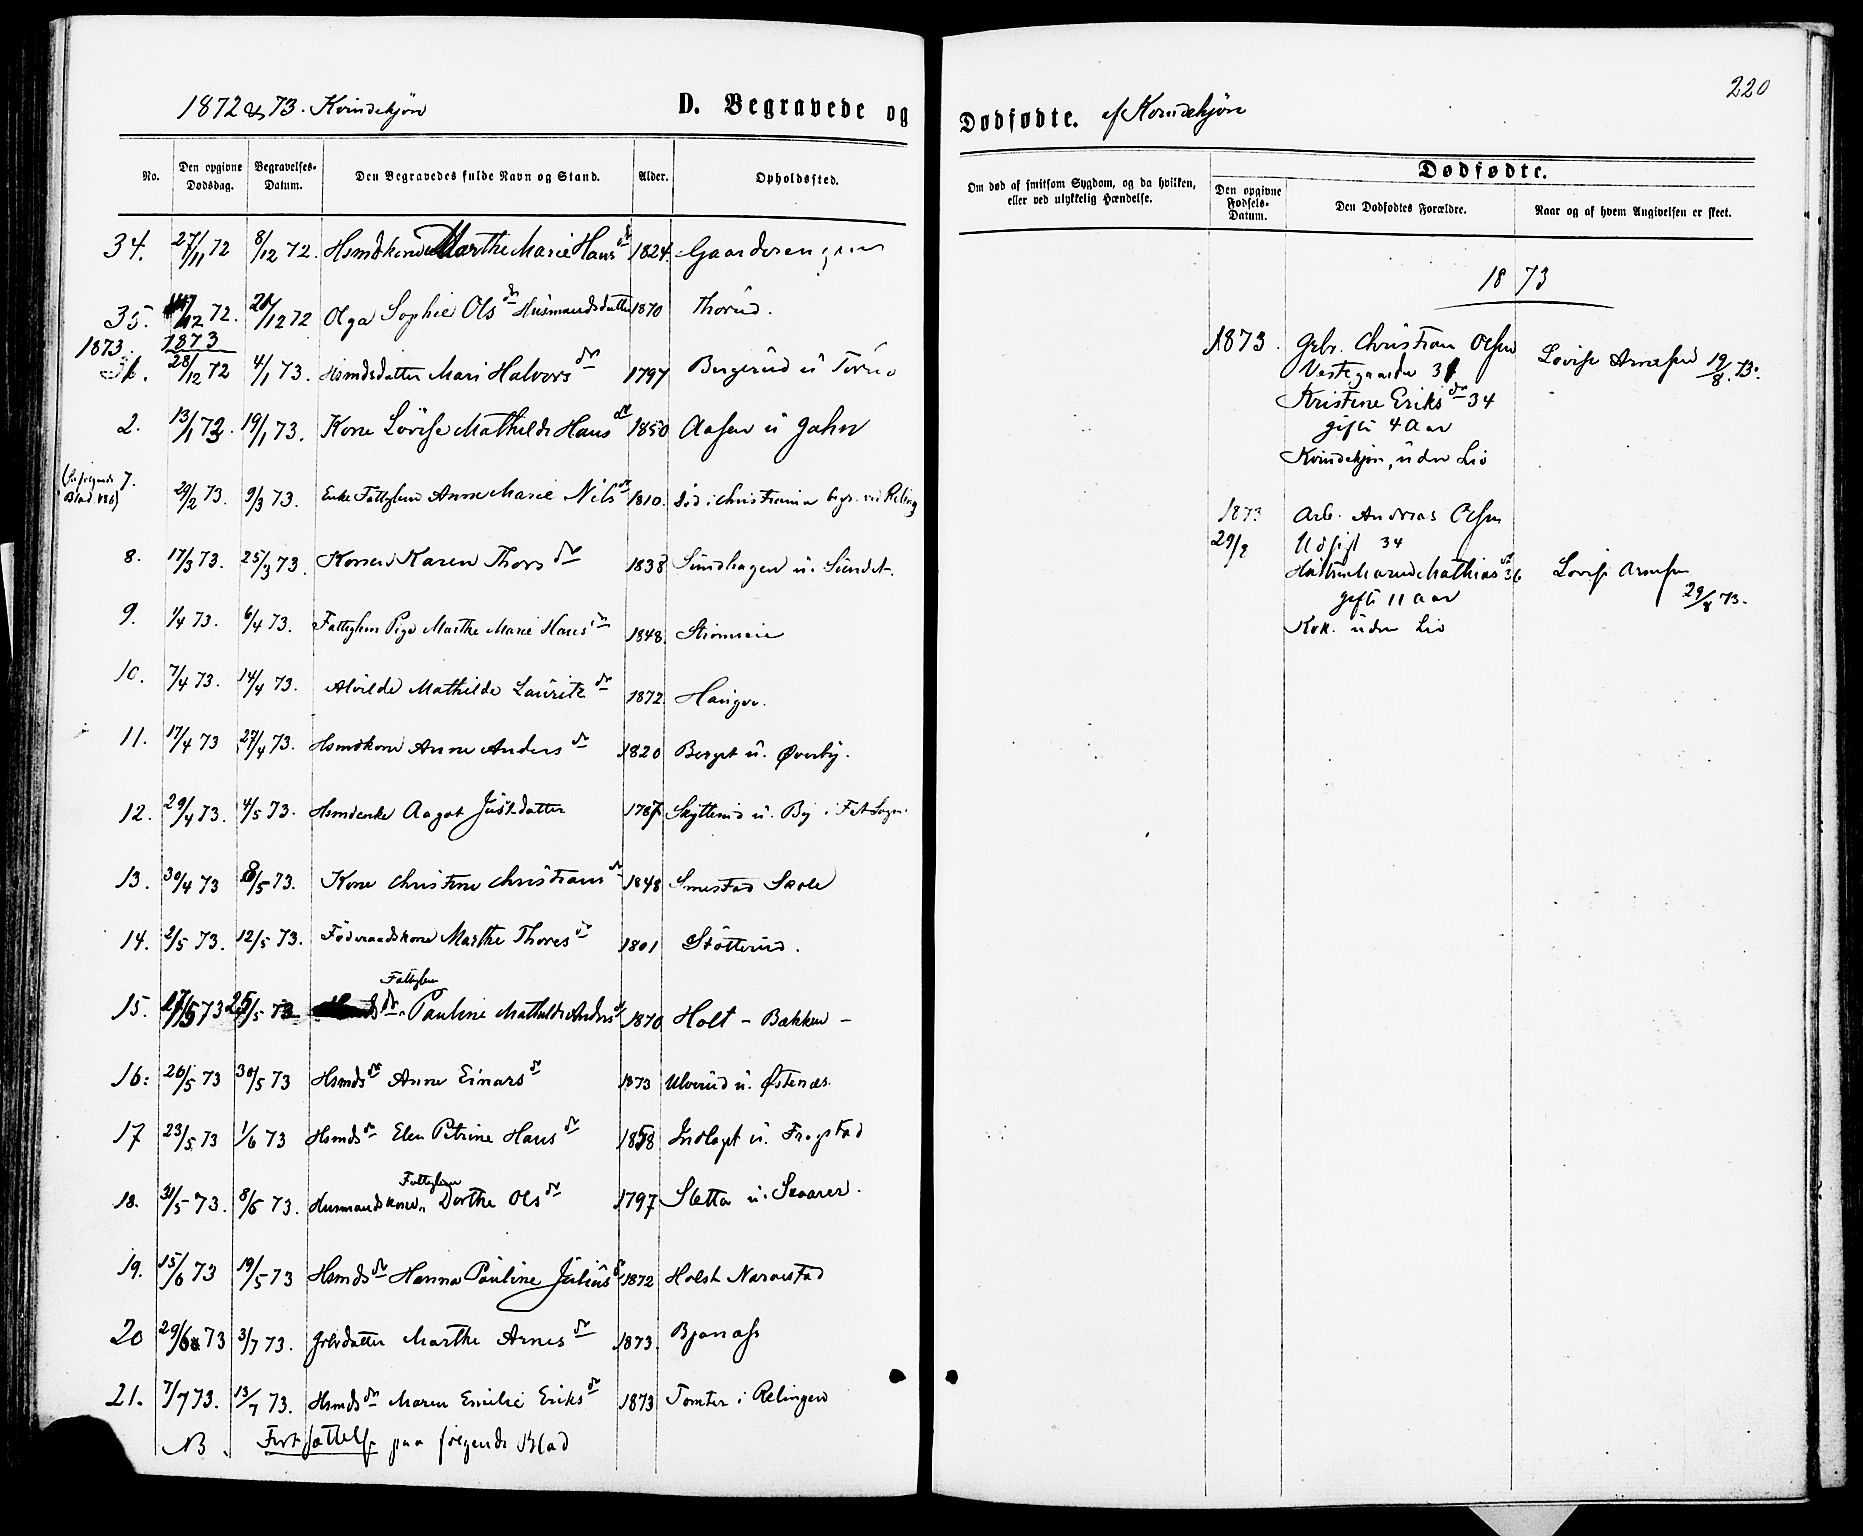 220
1872 & 73. Kvindekjøn D. Begravede og Dødfødte. af Kvindekjøn
No. Den opgivne Dødsdag. Begravelses-Datum. Den Begravedes fulde Navn og Stand. Alder. Opholdssted.
Om død af smitsom Sygdom, og da hvilken, eller ved ulykkelig Hændelse.
Dødfødte.
Den opgivne Fødsels-Datum. Den Dødfødtes Forældre. Naar og af hvem Angivelsen er skeet.
34. 27/11 72 8/12 72. Hsmdkone Marthe Marie Hans dr 1824. Gaarderengen
35. /12 72. 20/12 72 Olga Sophie Ols dr Husmandsdatter 1870 Thorud.
1873. 1873
1. 28/12 72 4/1 73. Hsmdsdatter Mari Halvors dr 1797 Bergerud u
2. 13/1 73. 19/1 73. Kone Lovise Mathilde Hans dr 1850 Aasen u Jahr
7. 29/2 73. 9/3 73. Enke Fattiglem Anne Marie Nils dr 1810. død i Christiania begr. ved Reling
8. 17/3 73. 25/3 73. Konen Karen Thors dr 1838 Sundhagen u. Sundet.
9. 1/4 73. 6/4 73. Fattiglem Pige Marthe Marie Hans dr 1848. Strømmen
10. 7/4 73. 14/4 73. Alvilde Mathilde Lauritz dr 1872. Haugen.
11. 17/4 73 27/4 73. Hsmdkone Anne Anders dr 1820 Berget u. Øverby.
12. 29/4 73. 4/5 73. Hsmdenke Aagot Justdatter 1787 Skytterud u. By i Fet Sogn.
13. 30/4 73 8/5 73. Kone Christine Christians dr 1848 Smestad Skole
14. 2/5 73. 12/5 73. Føderaadskone Marthe Thores dr 1801 Støtterud.
Fattiglem
15. 17/5 73 25/5 73 dr. Pauline Mathilde Anders dr 1870 Holt - Bækken -
16: 26/5 73 30/5 73 Hsmds dr Anne Einars dr 1873 Ulverud u. Østenæs.
17 23/5 73 1/6 73 Hsmds dr Elen Petrine Hans dr 1858 Indlaget u. Frogstad
Fattiglem
18. 31/5 73. 8/6 73. Husmandskone Dorthe Ols dr 1797 Sletta u. Svarer.
19. 15/6 73 19/5 73 Hsmds dr Hanna Pauline Julius dr 1872 Holsh Nararstad
20 29/6 73 3/7 73. Grbrdatter Marthe Arnes dr 1873. Bjønass
21. 7/7 73. 13/7 73. Hsmds dr Maren Emilie Eriks dr 1873 Tomter i Relingen
NB. Fortsættelse paa følgende Blad
1873
1873. Gbr. Christian Olsen
Vestegaarden 31
Kristine Eriks dr 34
gifte 4 Aar
Kvindekjøn, uden Liv
Lovise Arnesen 19/8. 73.
1873
29/8
Arb. Andreas Olsen
Udsigt 34
Mathias dr 36
gifte 11 Aar
Kvk. uden Liv
Lovise Arnesen
29/8 73.